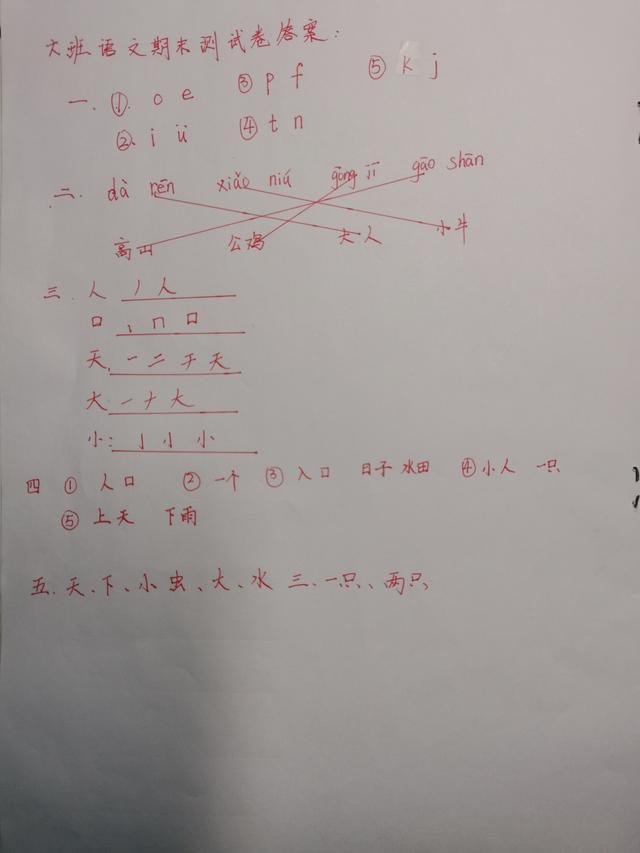 大班语文期末测试卷答案:
一. ① o e ③ p f ⑤ k j
② i ü ④ t n
二. dà rén xiǎo niú gōng jī gāo shān
高山 公鸡 大人 小牛
三. 人 丿 人
口 丨 冂 口
天 一 二 于 天
大 一 ナ 大
小: 亅 小 小
四 ① 人口 ② 一个 ③ 入口 日子 水田 ④ 小人 一只
⑤ 上天 下雨
五. 天、下、小 虫、大、水 三、一只、两只